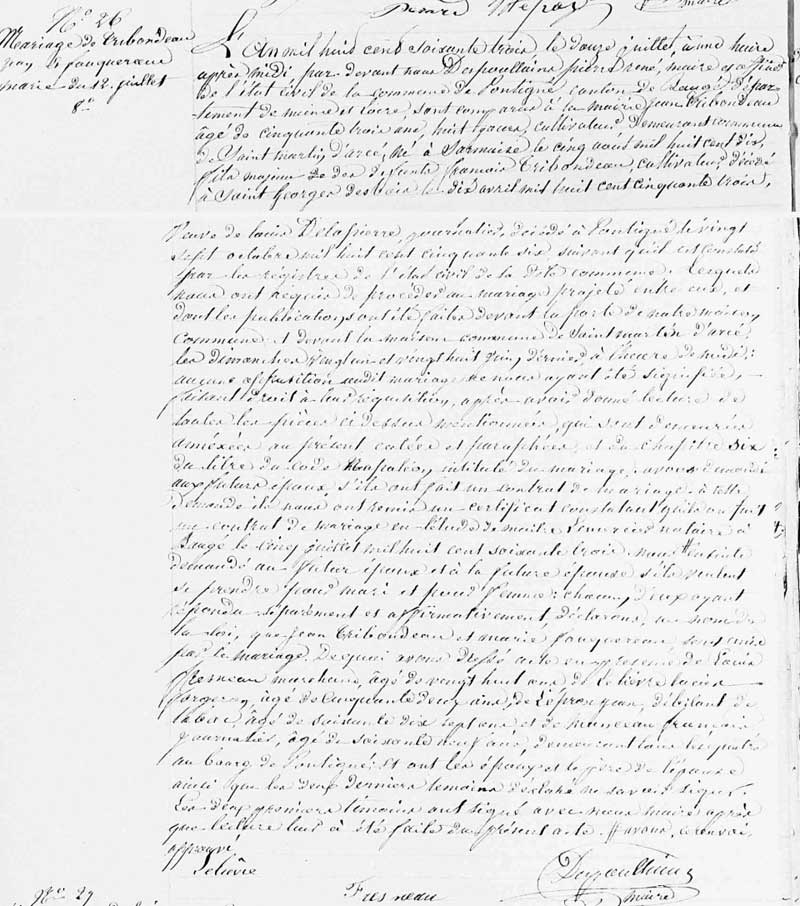 maire
No 26
Mariage de Tribondeau
jean & fouquereau
marie du 12 juillet
L'An mil huit cent soixante trois le douze juillet, à une heure
après midi, par devant nous Despoullains pierre rené, maire et officier
de l'état civil de la commune de Pontigné, canton de Baugé, dépar-
tement de maine et Loire, sont comparus à la mairie jean Tribondeau
âgé de cinquante trois ans, huit jours, cultivateur demeurant commune
de Saint martin d'arcé, né à Sermaise le cinq août mil huit cent dix,
fils majeur de défunts françois Tribondeau, cultivateur, décédé
à Saint Georges des bois le dix avril mil huit cent cinquante trois,
Veuve de Louis Delapierre, journalier, décédé à Pontigné le vingt
sept octobre mil huit cent cinquante six suivant qu'il est constaté
par les régistres de l'état civil de la dite commune. Lesquels
nous ont requis de procéder au mariage projeté entre eux, et
dont les publications ont été faites devant la porte de notre maison
commune et devant la maison commune de Saint martin d'arcé
les dimanches vingt un et vingt huit juin dernier, à l'heure de midi;
aucune opposition audit mariage ne nous ayant été signifiée,
faisant droit à leur réquisition, après avoir donné lecture de
toutes les pièces ci dessus mentionnées, qui sont demeurées
annéxées au présent cotées et paraphées, et du chapitre six
du titre du code Napoléon, intitulé du mariage, avons demandé
aux futurs époux, s'ils ont fait un contrat de mariage. à cette
demande ils nous ont remis un certificat constatant qu'ils ont fait
un contrat de mariage en l'étude de maître notaire à
Baugé le cinq juillet mil huit cent soixante trois. nous # ensuite
demandé au futur époux et à la future épouse s'ils veulent
se prendre pour mari et pour femme; chacun d'eux ayant
répondu séparément et affirmativement, déclarons, au nom de
la loi, que jean Tribondeau et marie fouquereau, sont unis
par le mariage. De quoi avons dressé acte en présence de Louis
Fresneau marchand, âgé de vingt huit ans de Lelièvre
forgeron, âgé de cinquante deux ans, de jean, débitant de
tabac, âgé de soixante dix sept ans et de manceau françois
journalier, âgé de soixante neuf ans, demeurant tous les quatre
au bourg de Pontigné. Et ont les époux et le père de l'épouse
ainsi que les deux derniers témoins déclaré ne savoir signer.
Les deux premiers témoins ont signé avec nous maire après
que lecture leur à été faite du présent acte. # avons, renvoi
approuvé
Lelièvre
Fresneau
Despoullains
maire
No 27